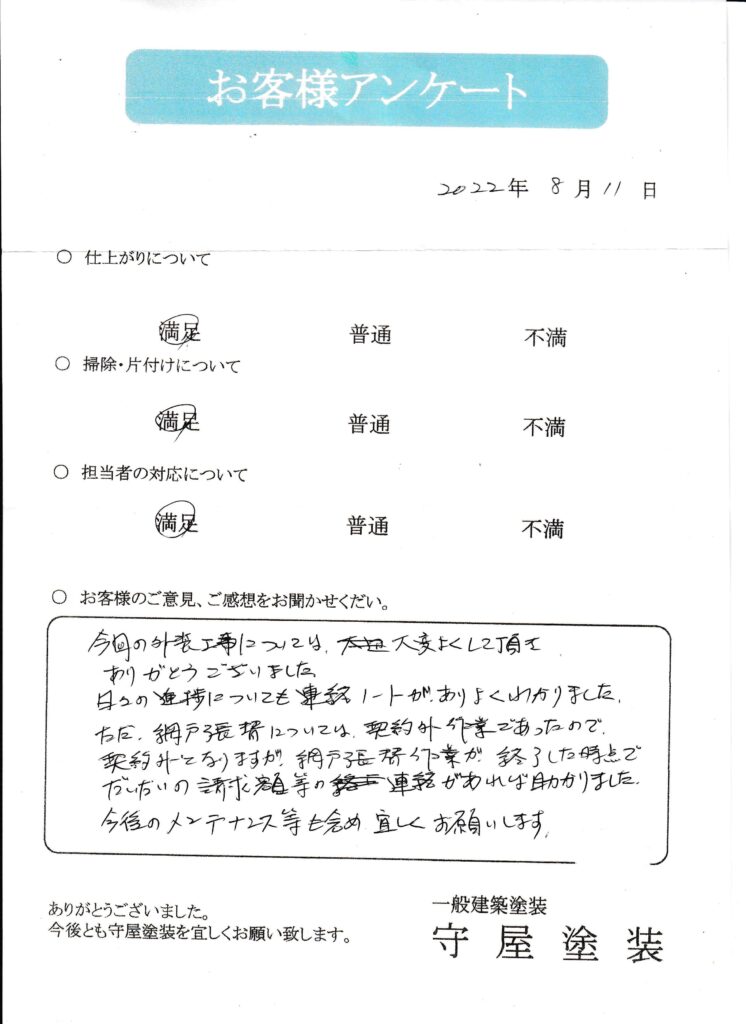 お客様アンケート
2022年 8月11日
○ 仕上がりについて
満足 普通 不満
○ 掃除・片付けについて
満足 普通 不満
○ 担当者の対応について
満足 普通 不満
○ お客様のご意見、ご感想をお聞かせくだい。
今回の外装工事については、大変よくして頂き
ありがとうございました。
日々の進捗についても連絡ノートがありよくわかりました。
ただ、網戸張替については、契約外作業であったので、
契約外となりますが、網戸張替作業が終了した時点で
だいたいの請求額等の連絡があれば助かりました。
今後のメンテナンス等も含め宜しくお願いします。
ありがとうございました。
今後とも守屋塗装を宜しくお願い致します。
一般建築塗装
守屋塗装